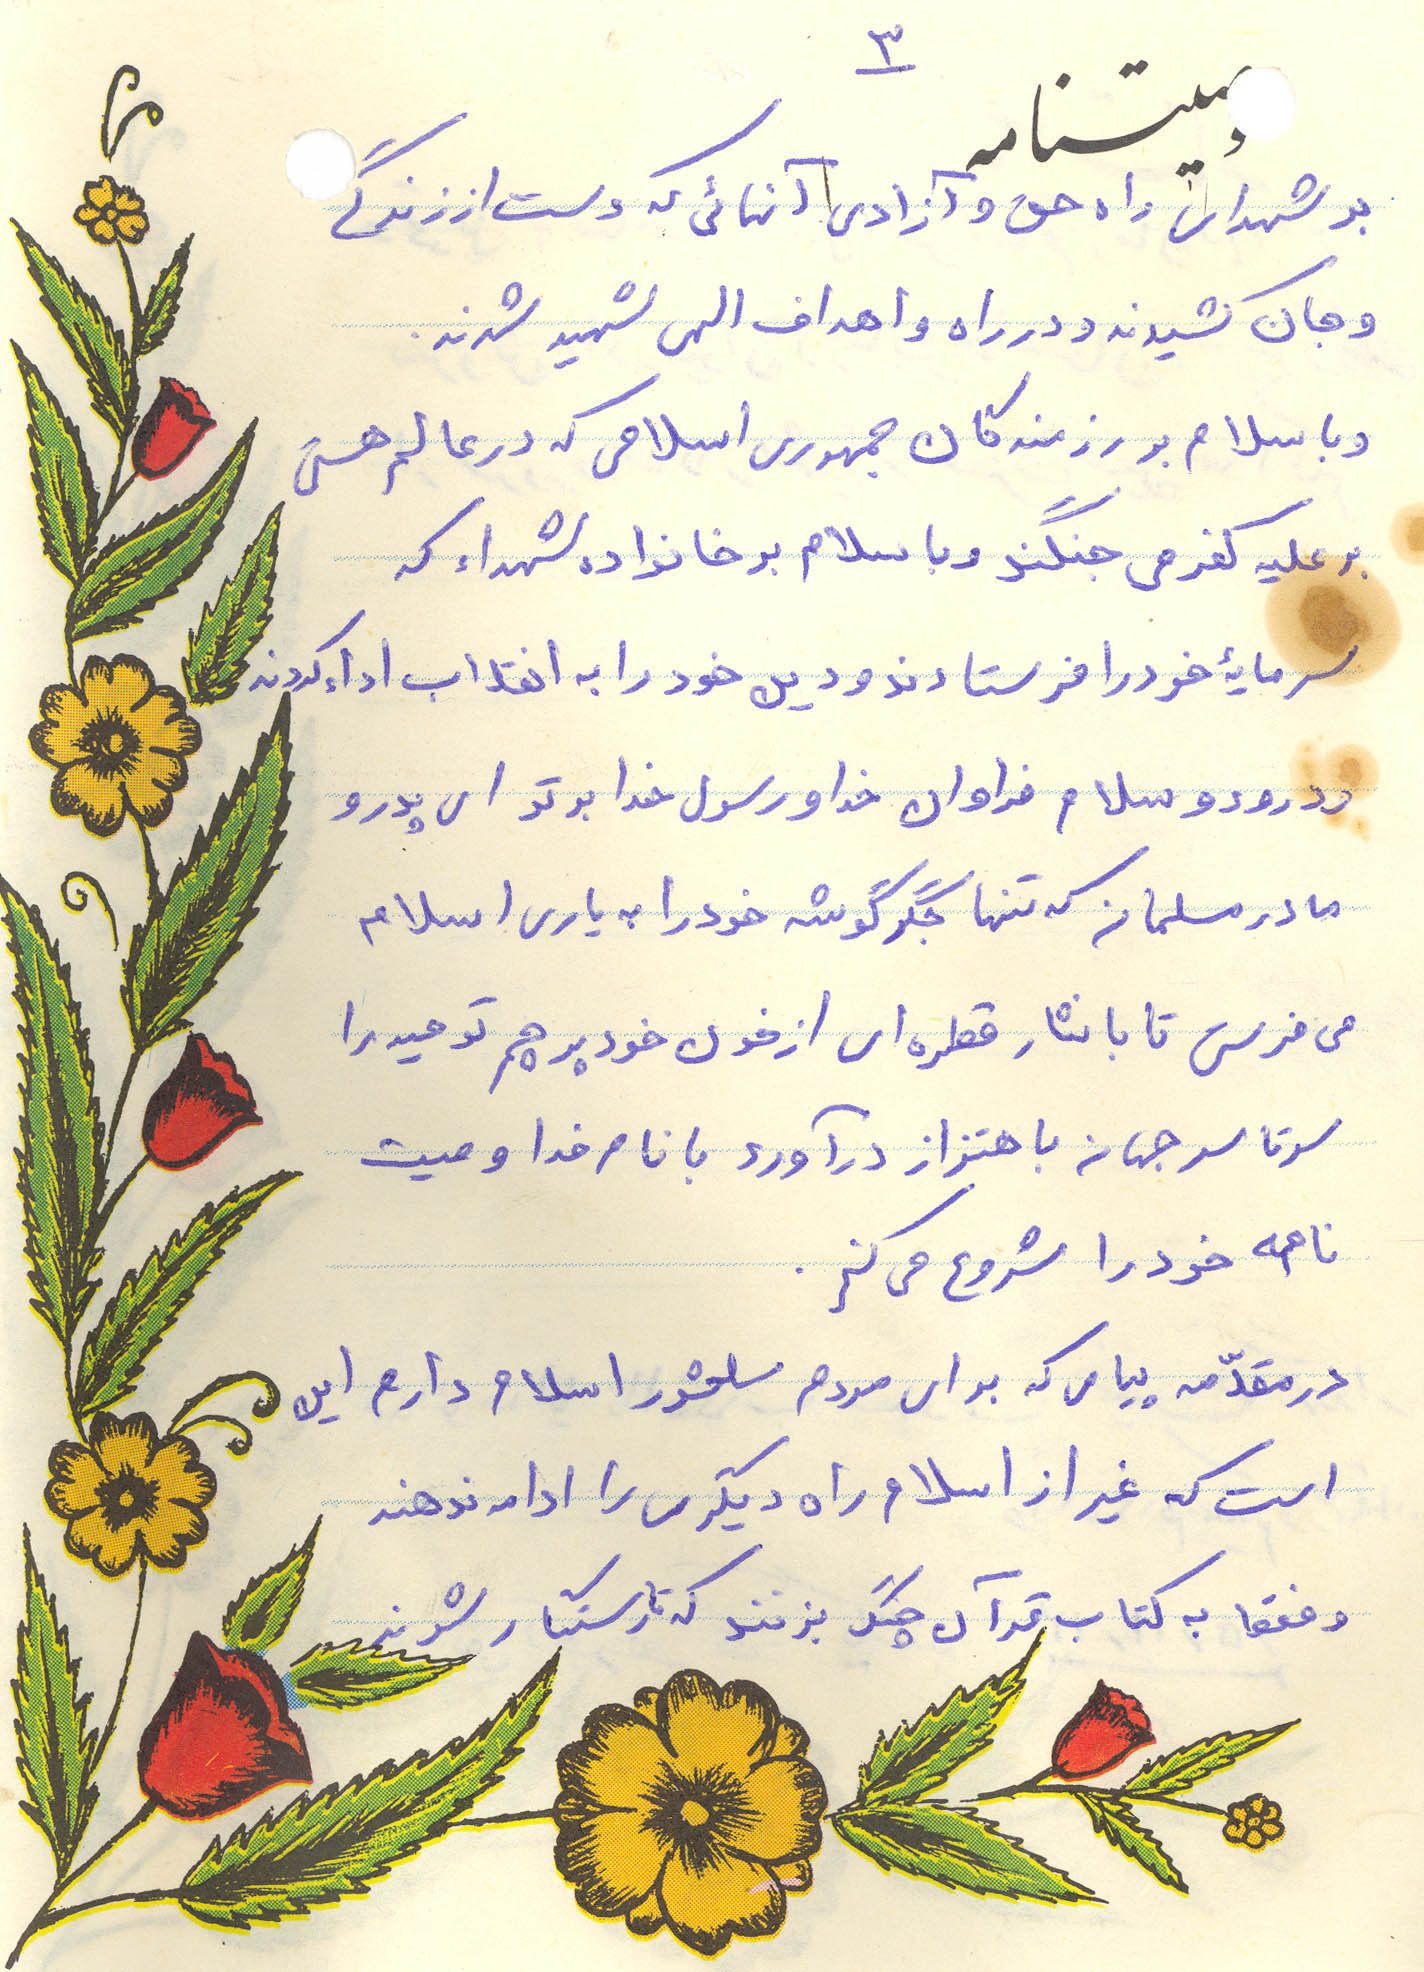 ۳
وصیتنامه
بر شهدای راه حق و آزادی آنهائی که دست از زندگی
و جان کشیدند و در راه و اهداف الهی شهید شدند.
و با سلام بر رزمندگان جمهوری اسلامی که در عالم هستی
بر علیه کفر می جنگند و با سلام بر خانواده شهداء که
سرمایهٔ خود را فرستادند و دین خود را به انقلاب اداء کردند
و درود و سلام فراوان خدا و رسول خدا بر تو ای پدر و
مادر مسلمانی که تنها جگر گوشه خود را به یاری اسلام
می فرستی تا با نثار قطره ای از خون خود پرچم توحید را
سرتاسر جهان باهتزاز درآورد با نام خدا وصیت
نامه خود را شروع می کنم.
در مقدّمه پیامی که برای مردم سلحشور اسلام دارم این
است که غیر از اسلام راه دیگری را ادامه ندهند
و فقط به کتاب قرآن چنگ بزنند که تا رستگار شوند